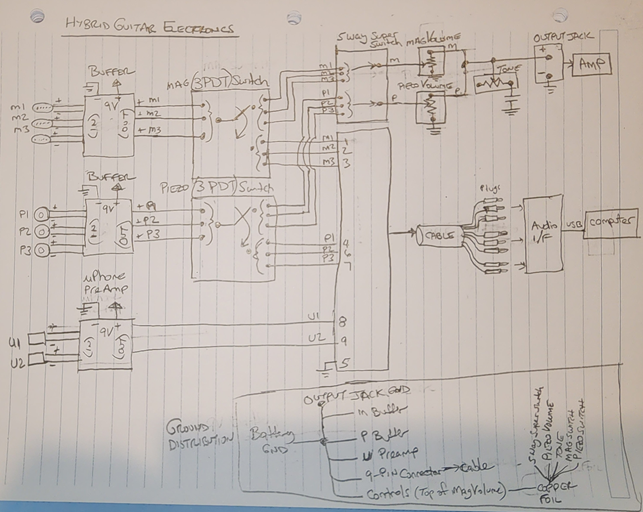 HYBRID GUITAR ELECTRONICS
5 WAY SUPER SWITCH
MAG VOLUME
OUTPUT JACK
BUFFER
MAG (3PDT) Switch
M1
M2
M3
M
M
+
-
AMP
PIEZO VOLUME
TONE
9V
(OUT)
+ M1
+ M2
+ M3
P1
P2
P3
P
P
M1
M2
M3
1
2
3
BUFFER
PIEZO (3PDT) Switch
P1
P2
P3
9V
(OUT)
+ P1
+ P2
+ P3
P1
P2
P3
6
7
Plugs
CABLE
Audio I/F
USB
Computer
µPhone PreAmp
- 9V +
(IN)
(OUT)
U1
U2
U1
U2
8
9
5
OUTPUT JACK GND
GROUND DISTRIBUTION
Battery GND
M Buffer
P Buffer
µ Preamp
9-PIN Connector → Cable
Controls (Top of Mag Volume)
5 way Super Switch
PIEZO VOLUME
TONE
MAG SWITCH
PIEZO SWITCH
COPPER FOIL